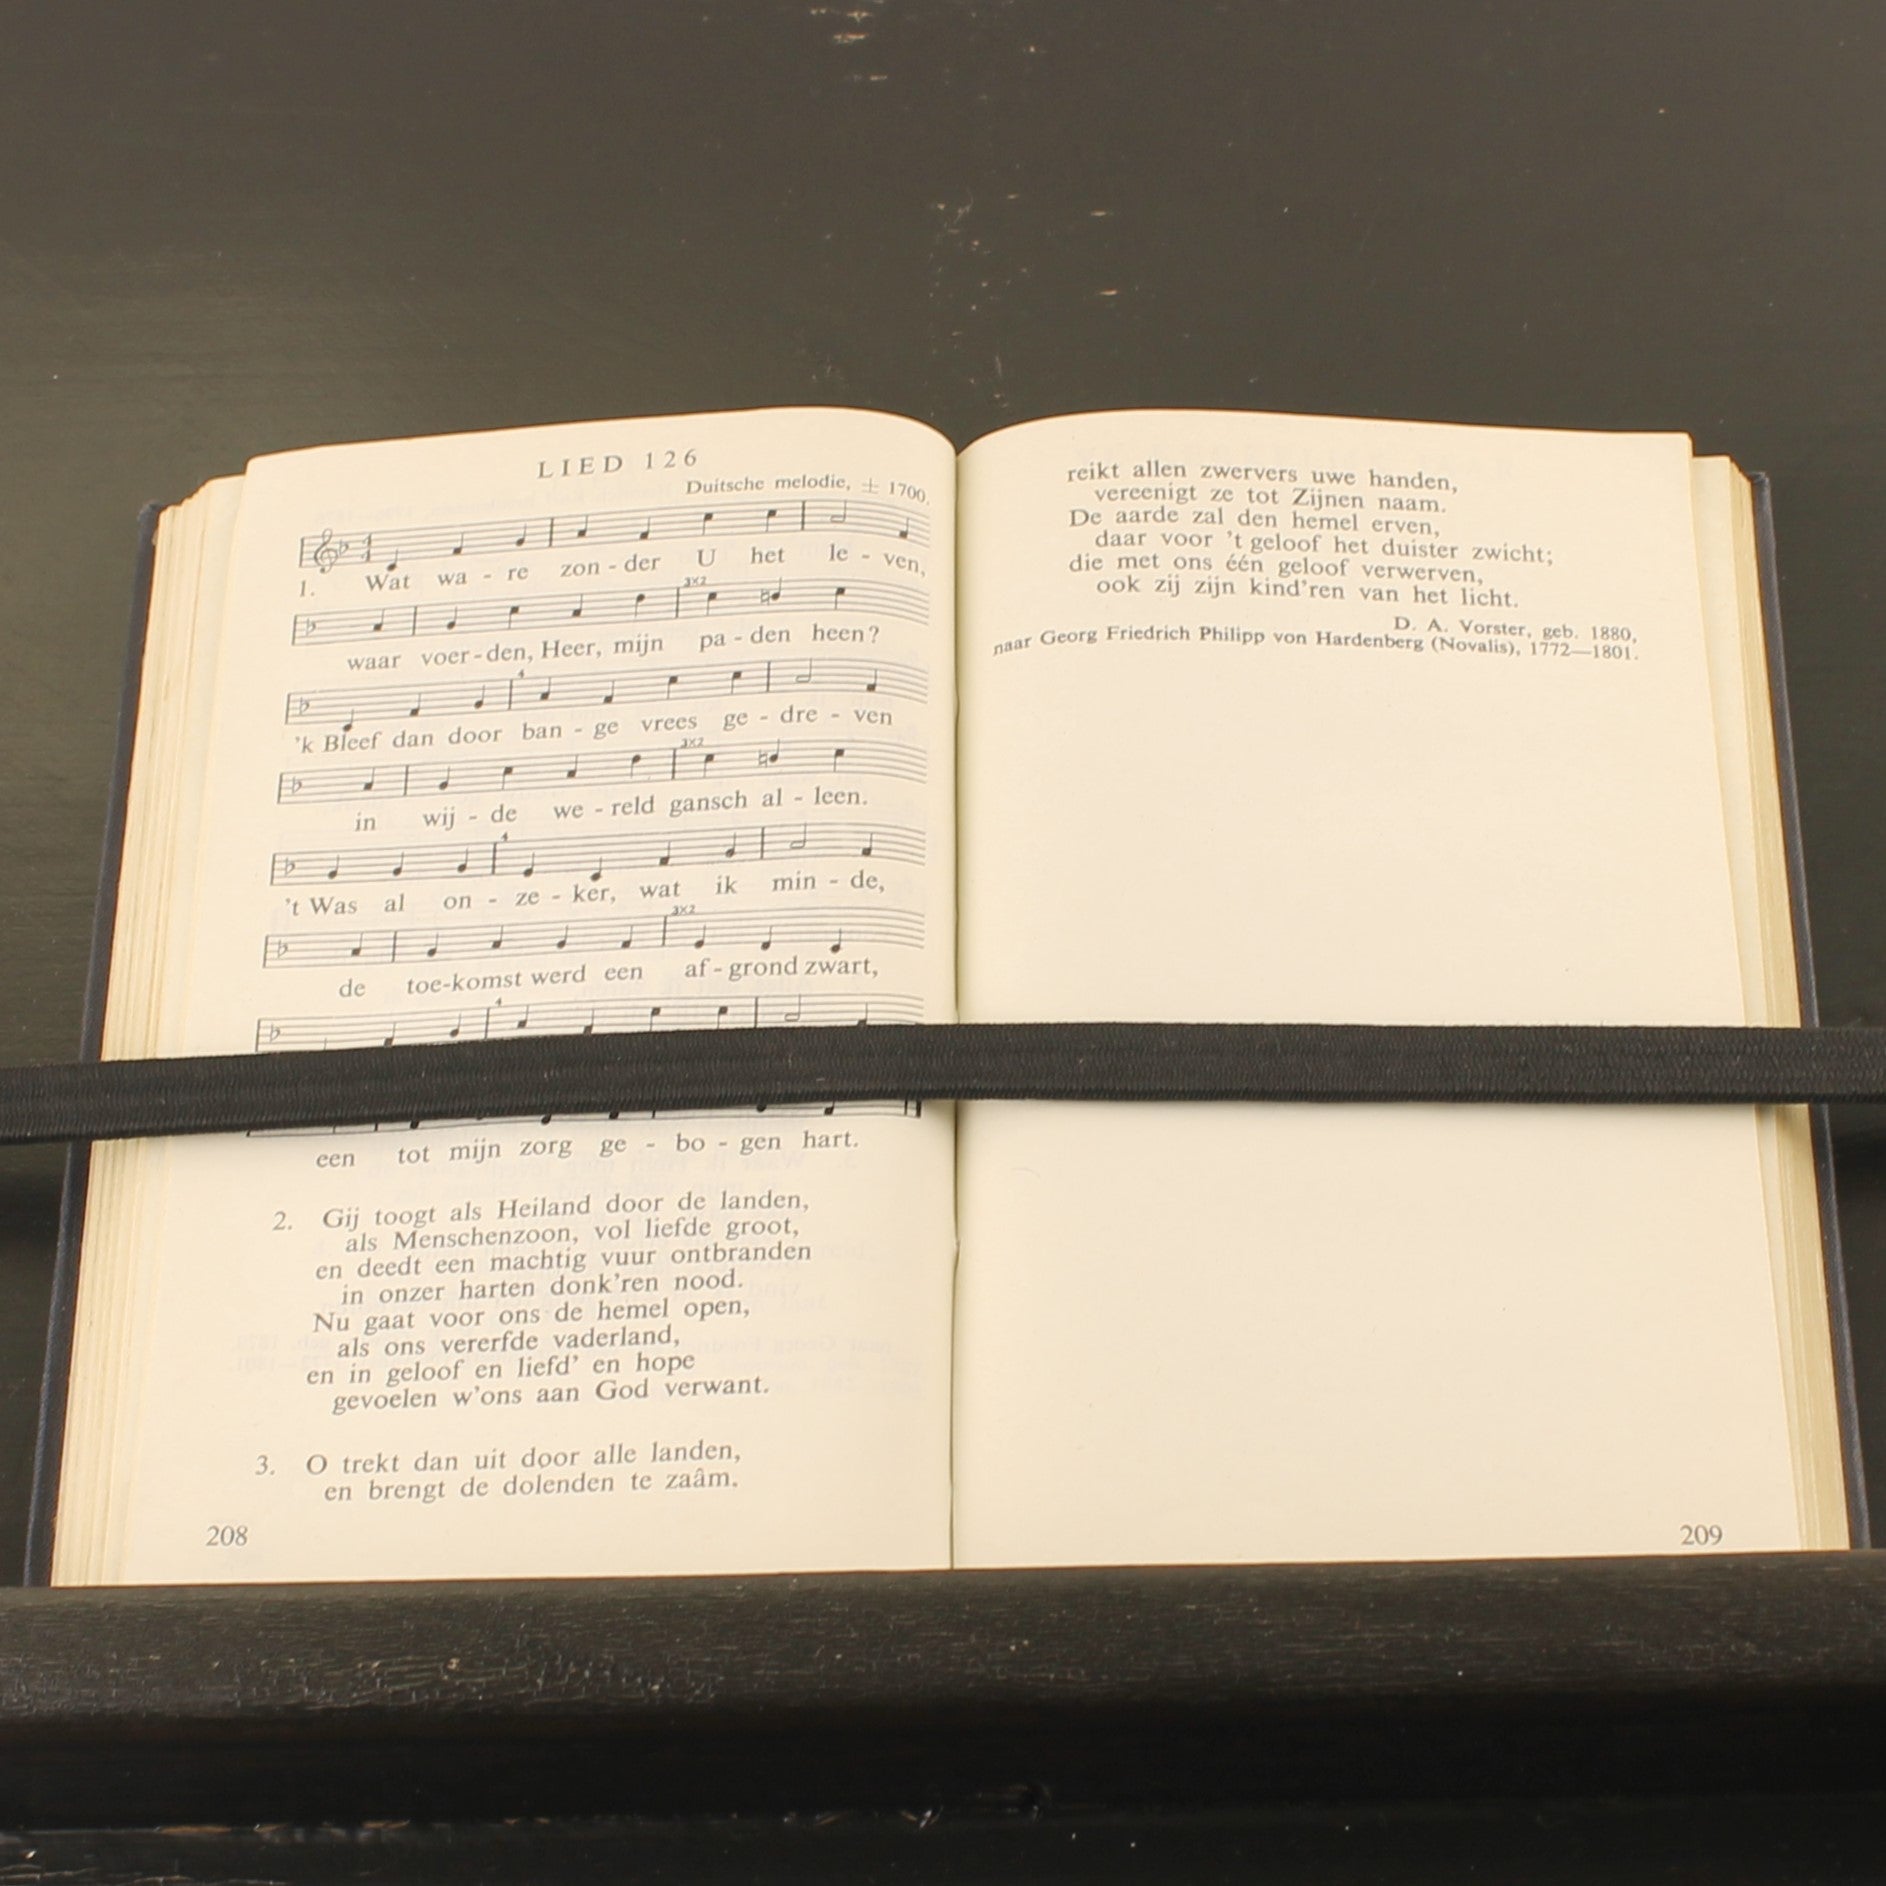 LIED 126
Duitsche melodie, ± 1700.
1. Wat wa - re zon - der U het le - ven,
3x2
waar voer - den, Heer, mijn pa - den heen?
4
'k Bleef dan door ban - ge vrees ge - dre - ven
3x2
in wij - de we - reld gansch al - leen.
4
't Was al on - ze - ker, wat ik min - de,
3x2
de toe-komst werd een af - grond zwart,
4
een tot mijn zorg ge - bo - gen hart.
2. Gij toogt als Heiland door de landen,
als Menschenzoon, vol liefde groot,
en deedt een machtig vuur ontbranden
in onzer harten donk'ren nood.
Nu gaat voor ons de hemel open,
als ons vererfde vaderland,
en in geloof en liefd' en hope
gevoelen w'ons aan God verwant.
3. O trekt dan uit door alle landen,
en brengt de dolenden te zaâm.
208
reikt allen zwervers uwe handen,
vereenigt ze tot Zijnen naam.
De aarde zal den hemel erven,
daar voor 't geloof het duister zwicht;
die met ons één geloof verwerven,
ook zij zijn kind'ren van het licht.
D. A. Vorster, geb. 1880,
naar Georg Friedrich Philipp von Hardenberg (Novalis), 1772—1801.
209